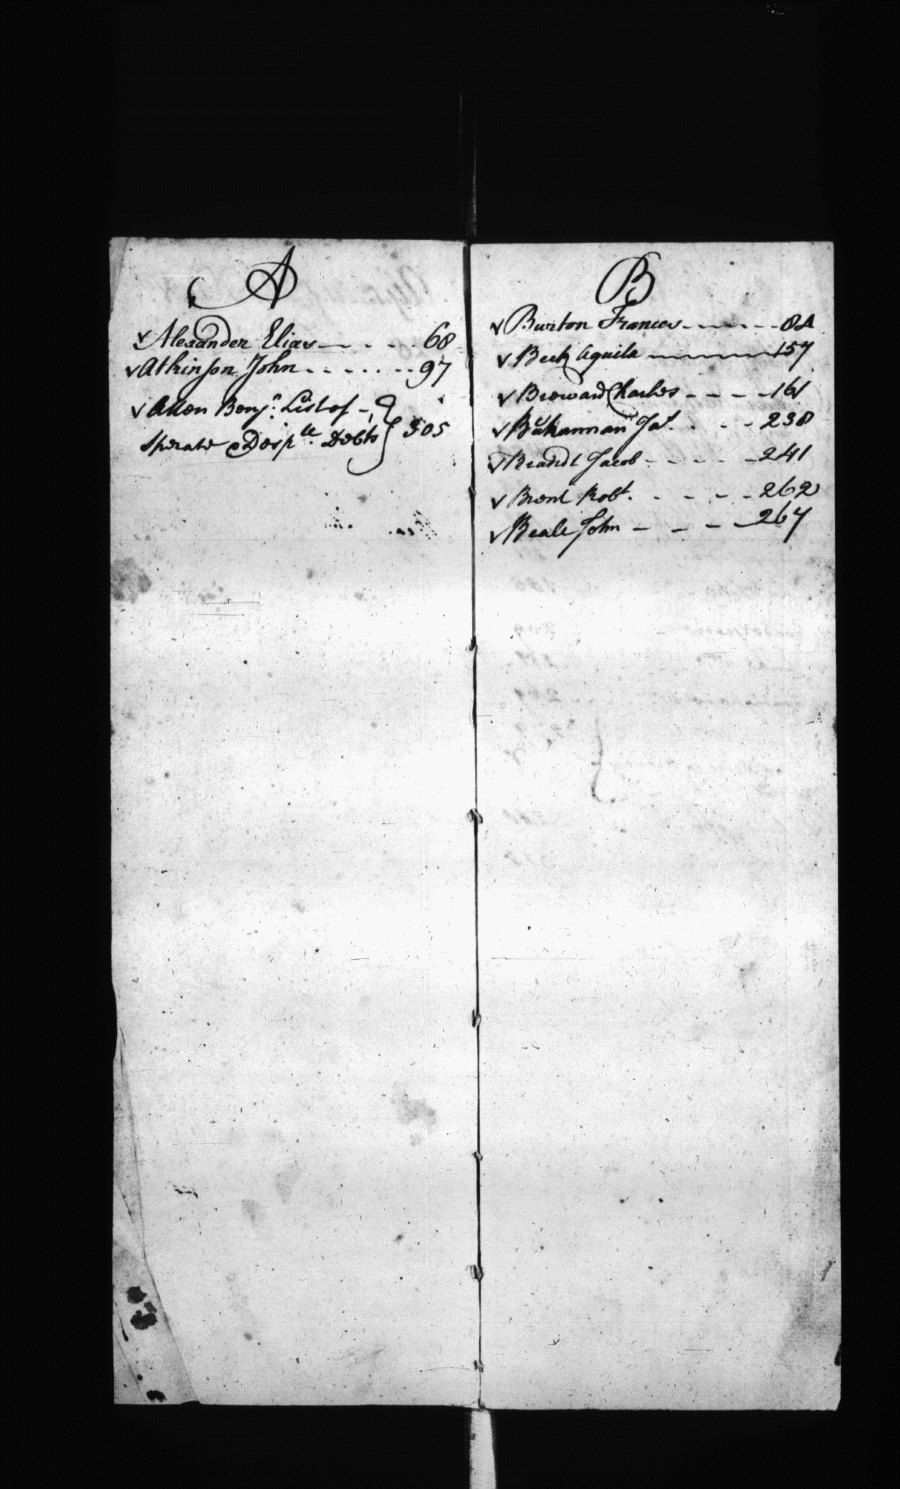 A
✓ Alexander Elias — - - - - 68
✓ Atkinson John - - - - - - - 97
✓ Allen Benjn. List of - }
Sperate & Desple. Debts } 305
B
✓ Burton Frances - - - - - - 84
✓ Beck Aquila — — — 157
✓ Broward Charles - - - - 161
✓ Buhannan Jas. - - - 238
✓ Brandt Jacob - - - - - 241
✓ Brent Robt. - - - - 262
✓ Beale John - - - - 267